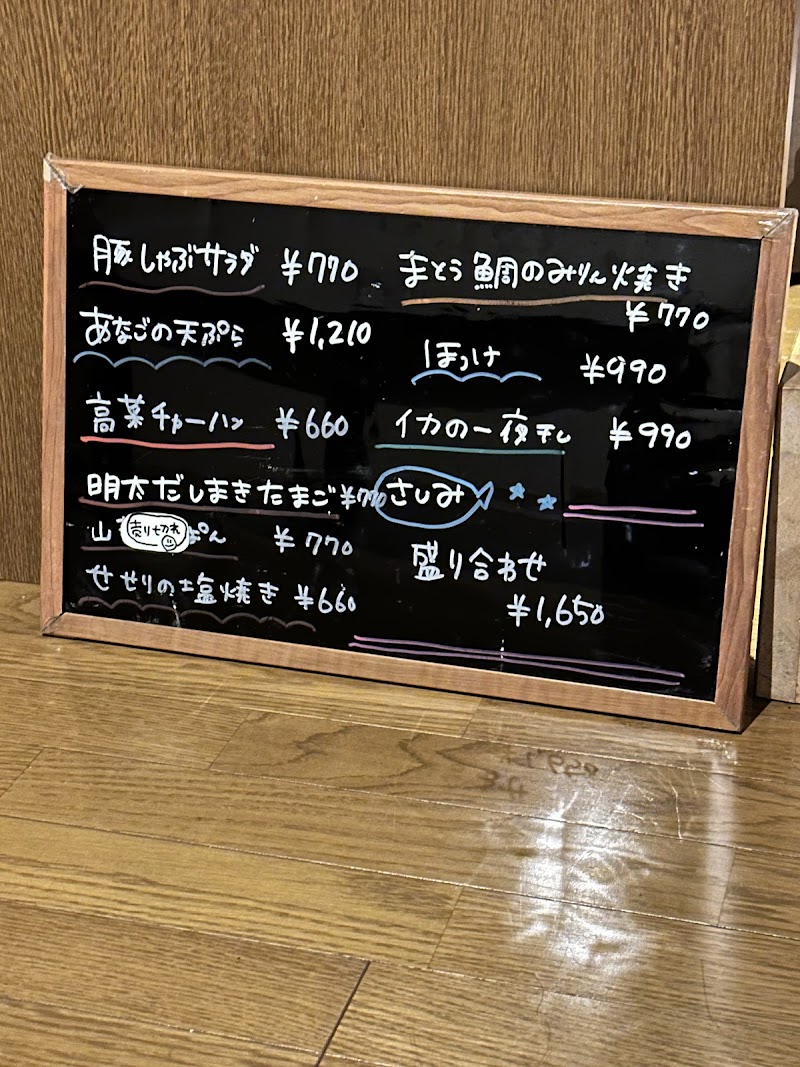 豚しゃぶサラダ ¥770
あなごの天ぷら ¥1,210
高菜チャーハン ¥660
明太だしまきたまご ¥770
山 売り切れ ぽん ¥770
せせりの塩焼き ¥660
まとう鯛のみりん焼き
¥770
ほっけ ¥990
イカの一夜干し ¥990
さしみ
盛り合わせ
¥1,650